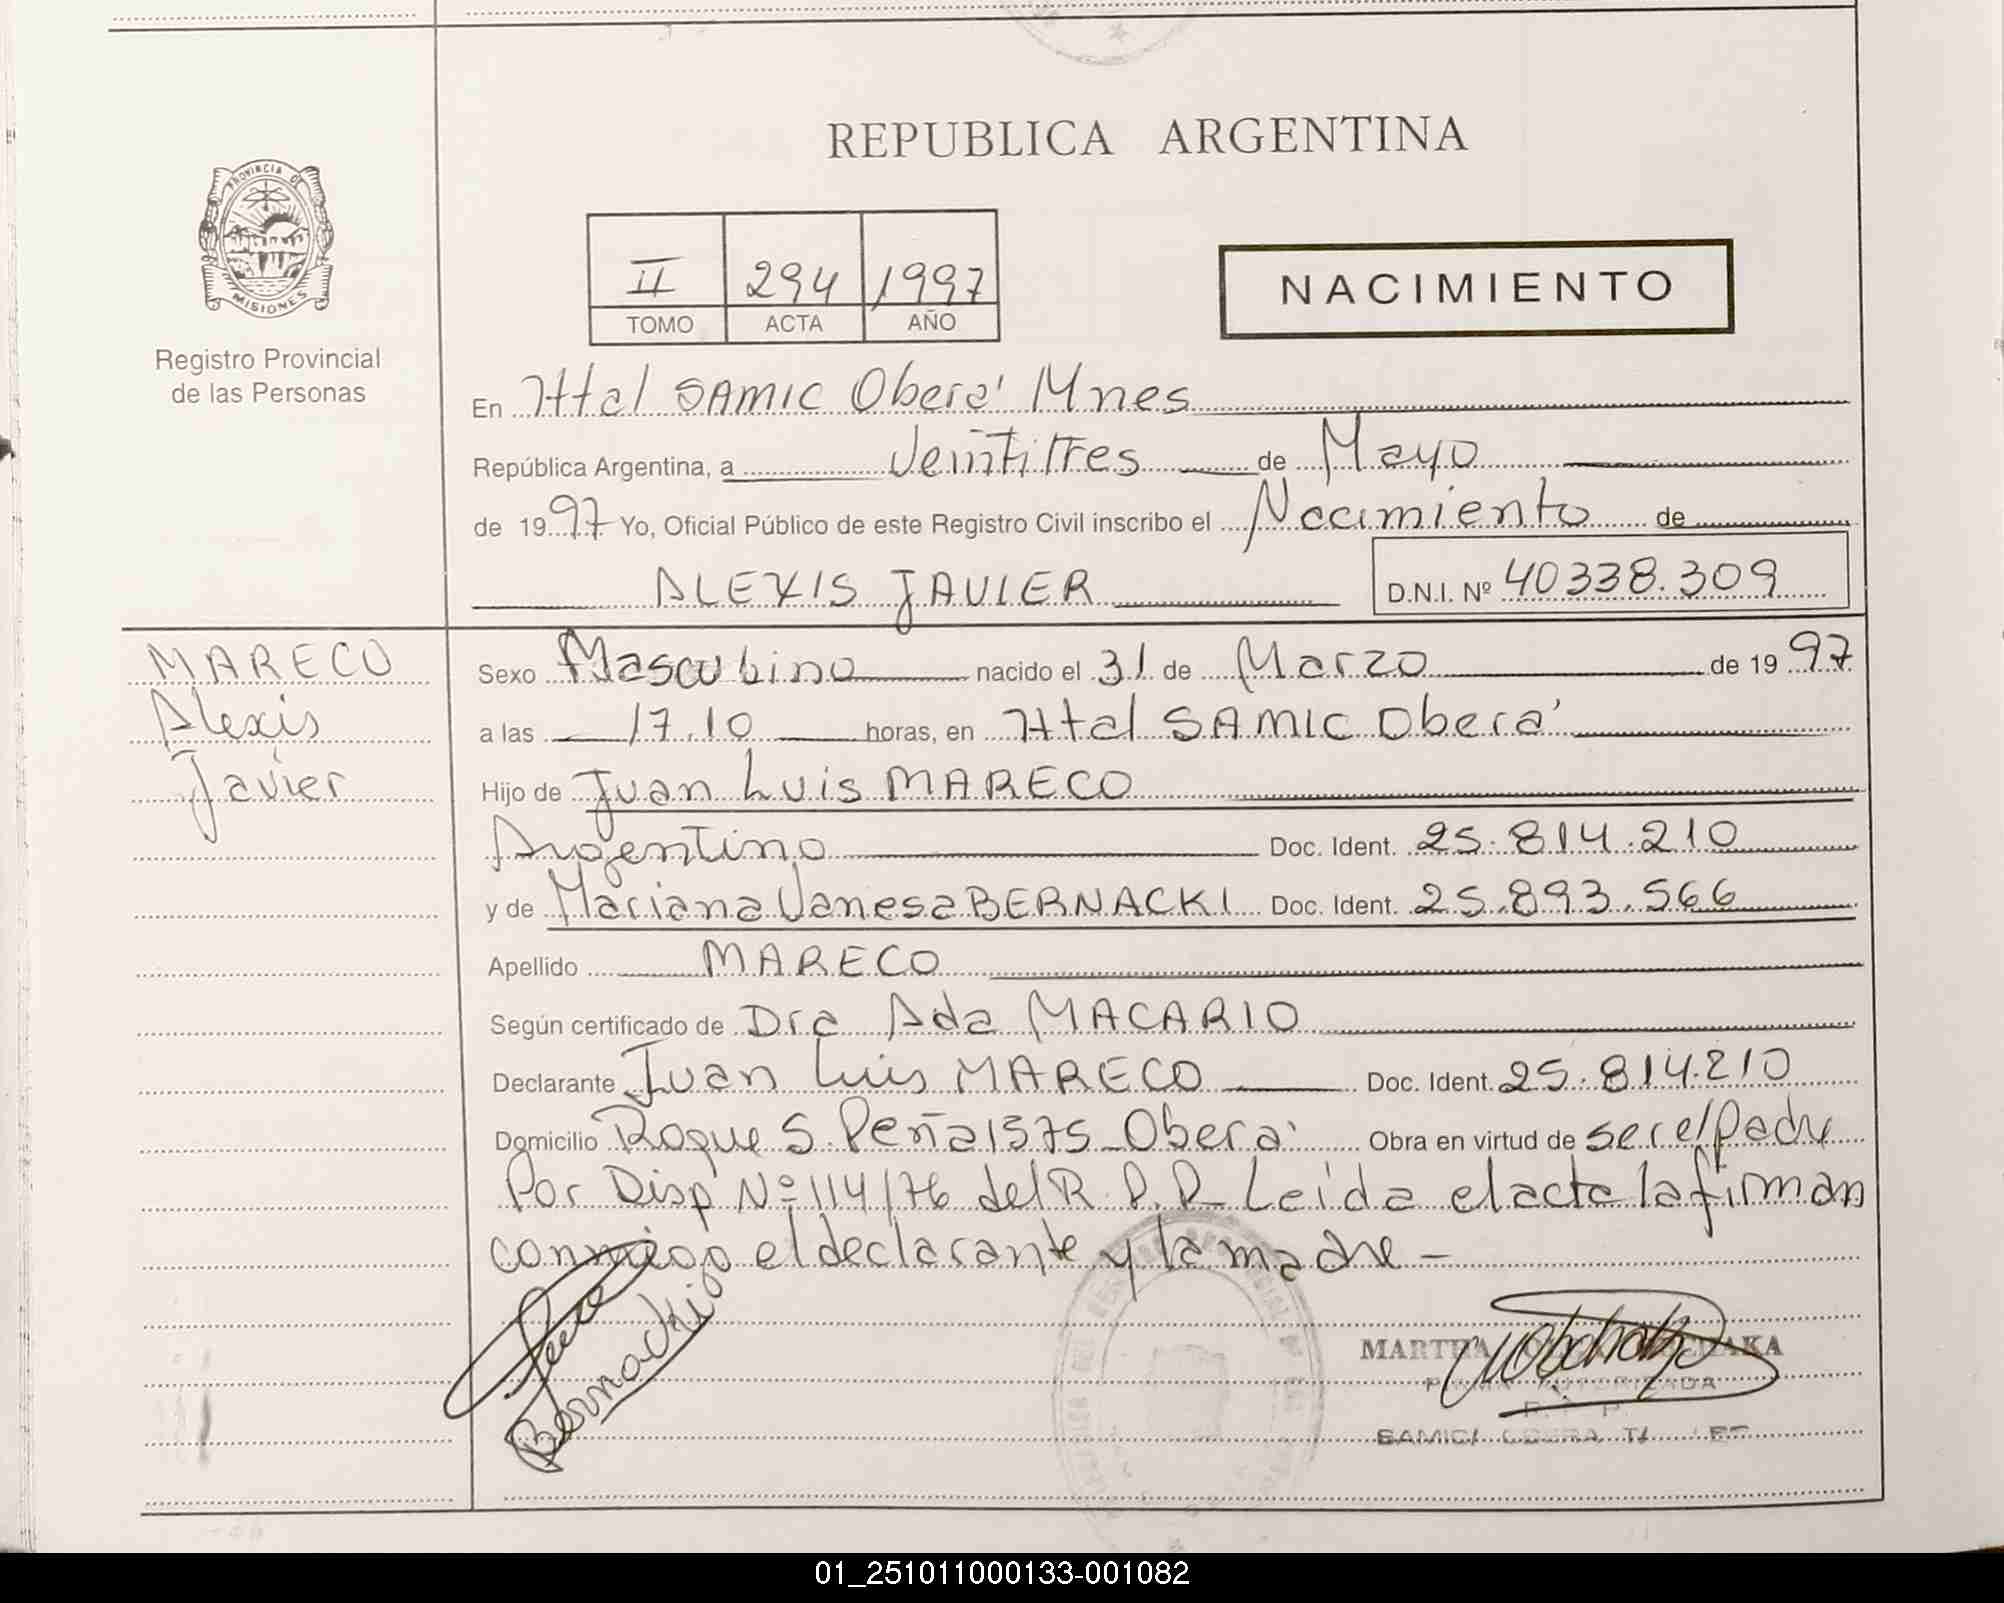 REPUBLICA ARGENTINA
PROVINCIA DE
MISIONES
Registro Provincial
de las Personas
II 294 1997
TOMO ACTA AÑO
NACIMIENTO
En Htal SAMIC Oberá Mnes
República Argentina, a Veintitres de Mayo
de 1997 Yo, Oficial Público de este Registro Civil inscribo el Nacimiento de
ALEXIS JAVIER D.N.I. Nº 40338.309
MARECO
Alexis
Javier
Sexo Masculino nacido el 31 de Marzo de 1997
a las 17.10 horas, en Htal SAMIC Oberá
Hijo de Juan Luis MARECO
Argentino Doc. Ident. 25.814.210
y de Mariana Vanesa BERNACKI Doc. Ident. 25.893.566
Apellido MARECO
Según certificado de Dra Ada MACARIO
Declarante Juan Luis MARECO Doc. Ident. 25.814.210
Domicilio Roque S. Peña 1575 - Oberá Obra en virtud de ser el Padre
Por Disp Nº 114/76 del R.P.P. Leída el acta la firman
conmigo el declarante y la madre -
Bernacki
MARTHA
FIRMA AUTORIZADA
SAMIC OBERA
01_251011000133-001082